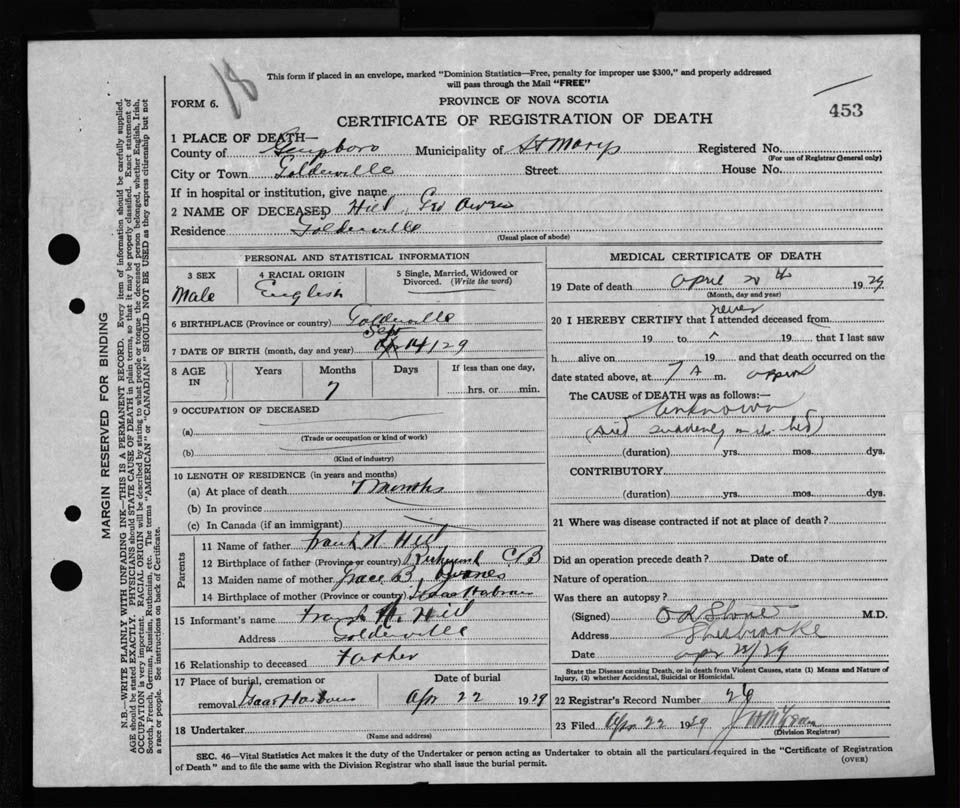 18
This form if placed in an envelope, marked "Dominion Statistics—Free, penalty for improper use $300," and properly addressed
will pass through the Mail "FREE"
FORM 6.
PROVINCE OF NOVA SCOTIA
453
CERTIFICATE OF REGISTRATION OF DEATH
1 PLACE OF DEATH—
County of Guysboro Municipality of St Marys Registered No.
(For use of Registrar General only)
City or Town Goldenville Street House No.
If in hospital or institution, give name
2 NAME OF DECEASED Hill, Geo Owen
Residence Goldenville
(Usual place of abode)
PERSONAL AND STATISTICAL INFORMATION
3 SEX
Male
4 RACIAL ORIGIN
English
5 Single, Married, Widowed or
Divorced. (Write the word)
6 BIRTHPLACE (Province or country) Goldenville
Sept
7 DATE OF BIRTH (month, day and year) 14/29
8 AGE
IN
Years
Months
7
Days
If less than one day,
hrs. or min.
9 OCCUPATION OF DECEASED
(a)
(Trade or occupation or kind of work)
(b)
(Kind of industry)
10 LENGTH OF RESIDENCE (in years and months)
(a) At place of death 7 months
(b) In province
(c) In Canada (if an immigrant)
Parents
11 Name of father Frank N. Hill
12 Birthplace of father (Province or country) Richmond CB
13 Maiden name of mother Grace B,
14 Birthplace of mother (Province or country) Isaacs Harbour
15 Informant's name Frank N. Hill
Address Goldenville
16 Relationship to deceased Father
17 Place of burial, cremation or
removal Isaacs Harbour
Date of burial
Apr 22 1929
18 Undertaker
(Name and address)
MEDICAL CERTIFICATE OF DEATH
19 Date of death April 20th 1929
(Month, day and year)
never
20 I HEREBY CERTIFY that I attended deceased from
19 to 19 that I last saw
h alive on 19 and that death occurred on
date stated above, at 7 A m. approx
The CAUSE of DEATH was as follows:—
Unknown
(Died suddenly in its bed)
(duration) yrs. mos. dys.
CONTRIBUTORY
(duration) yrs. mos. dys.
21 Where was disease contracted if not at place of death?
Did an operation precede death? Date of
Nature of operation
Was there an autopsy?
(Signed) M.D.
Address Sherbrooke
Date Apr /29
State the Disease causing Death, or in death from Violent Causes, state (1) Means and Nature of
Injury, (2) whether Accidental, Suicidal or Homicidal.
22 Registrar's Record Number 26
23 Filed Apr 22 1929
(Division Registrar)
SEC. 46—Vital Statistics Act makes it the duty of the Undertaker or person acting as Undertaker to obtain all the particulars required in the "Certificate of Registration
of Death" and to file the same with the Division Registrar who shall issue the burial permit.
(OVER)
MARGIN RESERVED FOR BINDING
N.B.—WRITE PLAINLY WITH UNFADING INK—THIS IS A PERMANENT RECORD. Every item of information should be carefully supplied.
AGE should be stated EXACTLY. PHYSICIANS should STATE CAUSE OF DEATH in plain terms, so that it may be properly classified. Exact statement of
OCCUPATION is very important. RACIAL ORIGIN will be described by stating to what people or tongue the deceased person belonged, whether English, Irish,
Scotch, French, German, Russian, Ruthenian, etc. The terms "AMERICAN" or "CANADIAN" SHOULD NOT BE USED as they express citizenship but not
a race or people. See instructions on back of Certificate.